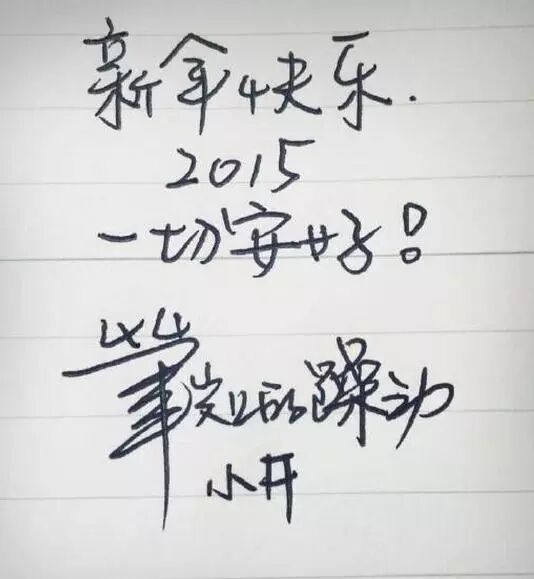 新年快乐.
2015
一切安好!
岁的躁动
小开